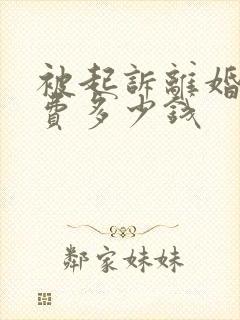 被起訴離婚
費多少錢
鄰家妹妹